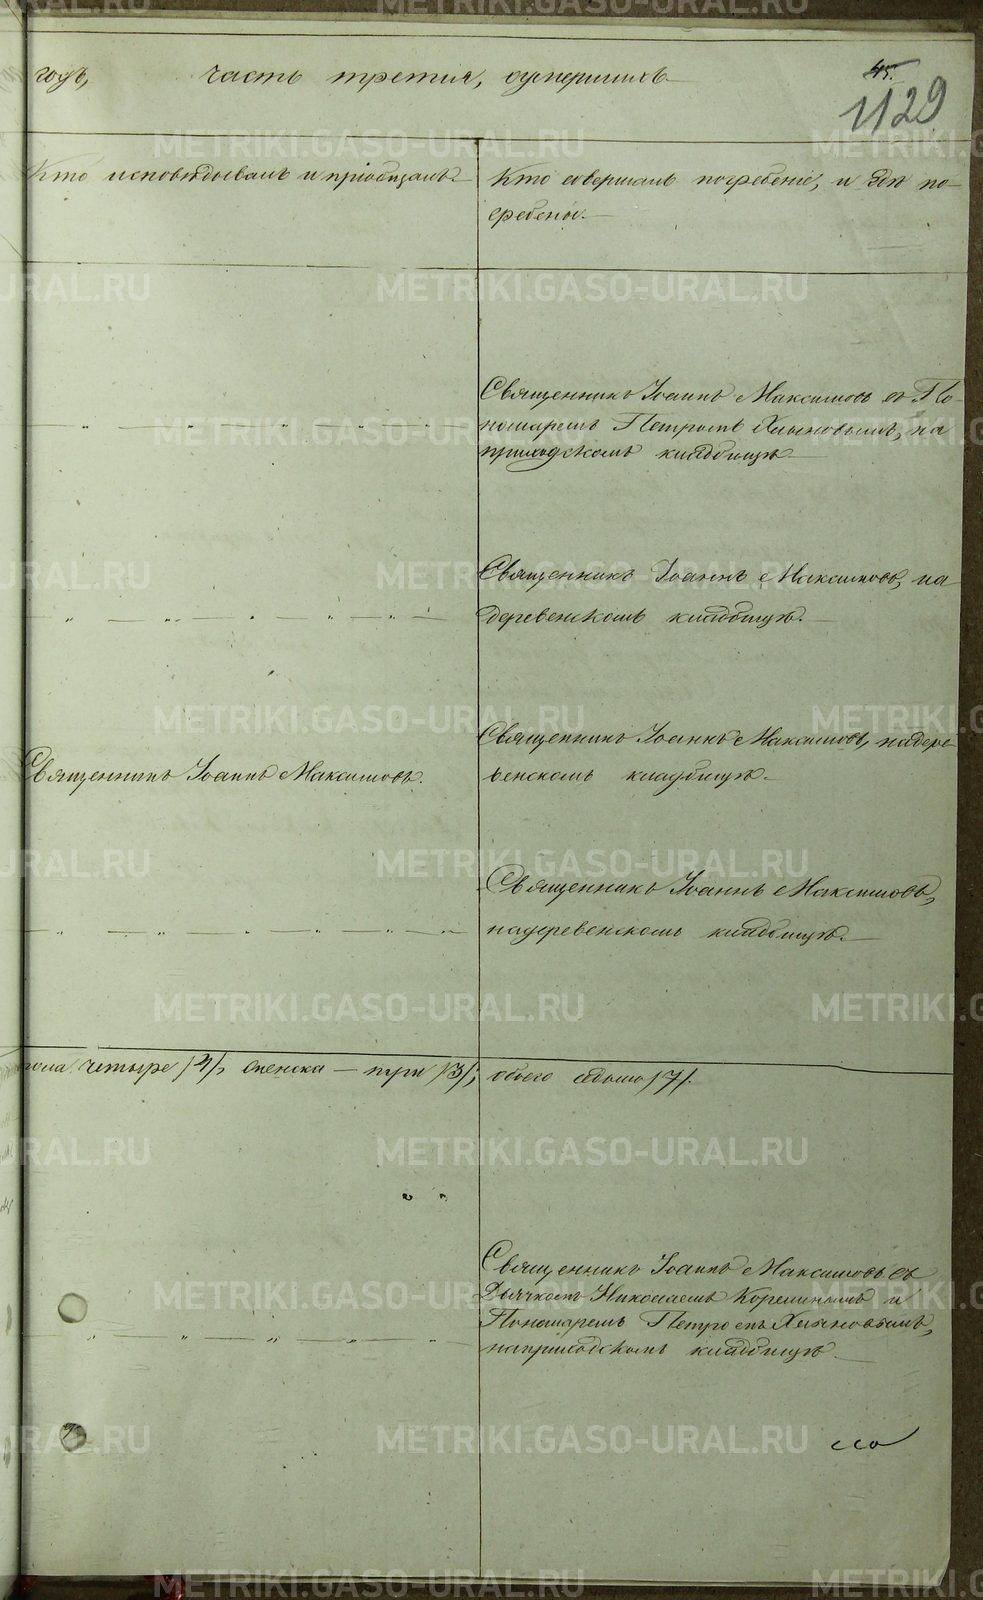 годъ, часть третия, оумершихъ
45.
1129
Кто исповѣдывалъ и приобщалъ.
Кто совершалъ погребение, и гдѣ по-
гребены.
Священникъ Иоаннъ Максимовъ съ По-
номаремъ Петромъ Хлыновымъ, на
приходскомъ кладбищѣ.
Священникъ Иоаннъ Максимовъ, на
деревенскомъ кладбищѣ.
Священникъ Иоаннъ Максимовъ, на дере-
венскомъ кладбищѣ.
Священникъ Иоаннъ Максимовъ.
Священникъ Иоаннъ Максимовъ,
на деревенскомъ кладбищѣ.
пола четыре /4/, женска — три /3/; обоего седмь /7/.
Священникъ Иоаннъ Максимовъ съ
Дьячкомъ Николаемъ Корелинымъ и
Пономаремъ Петромъ Хлыновымъ,
на приходскомъ кладбищѣ.
METRIKI.GASO-URAL.RU